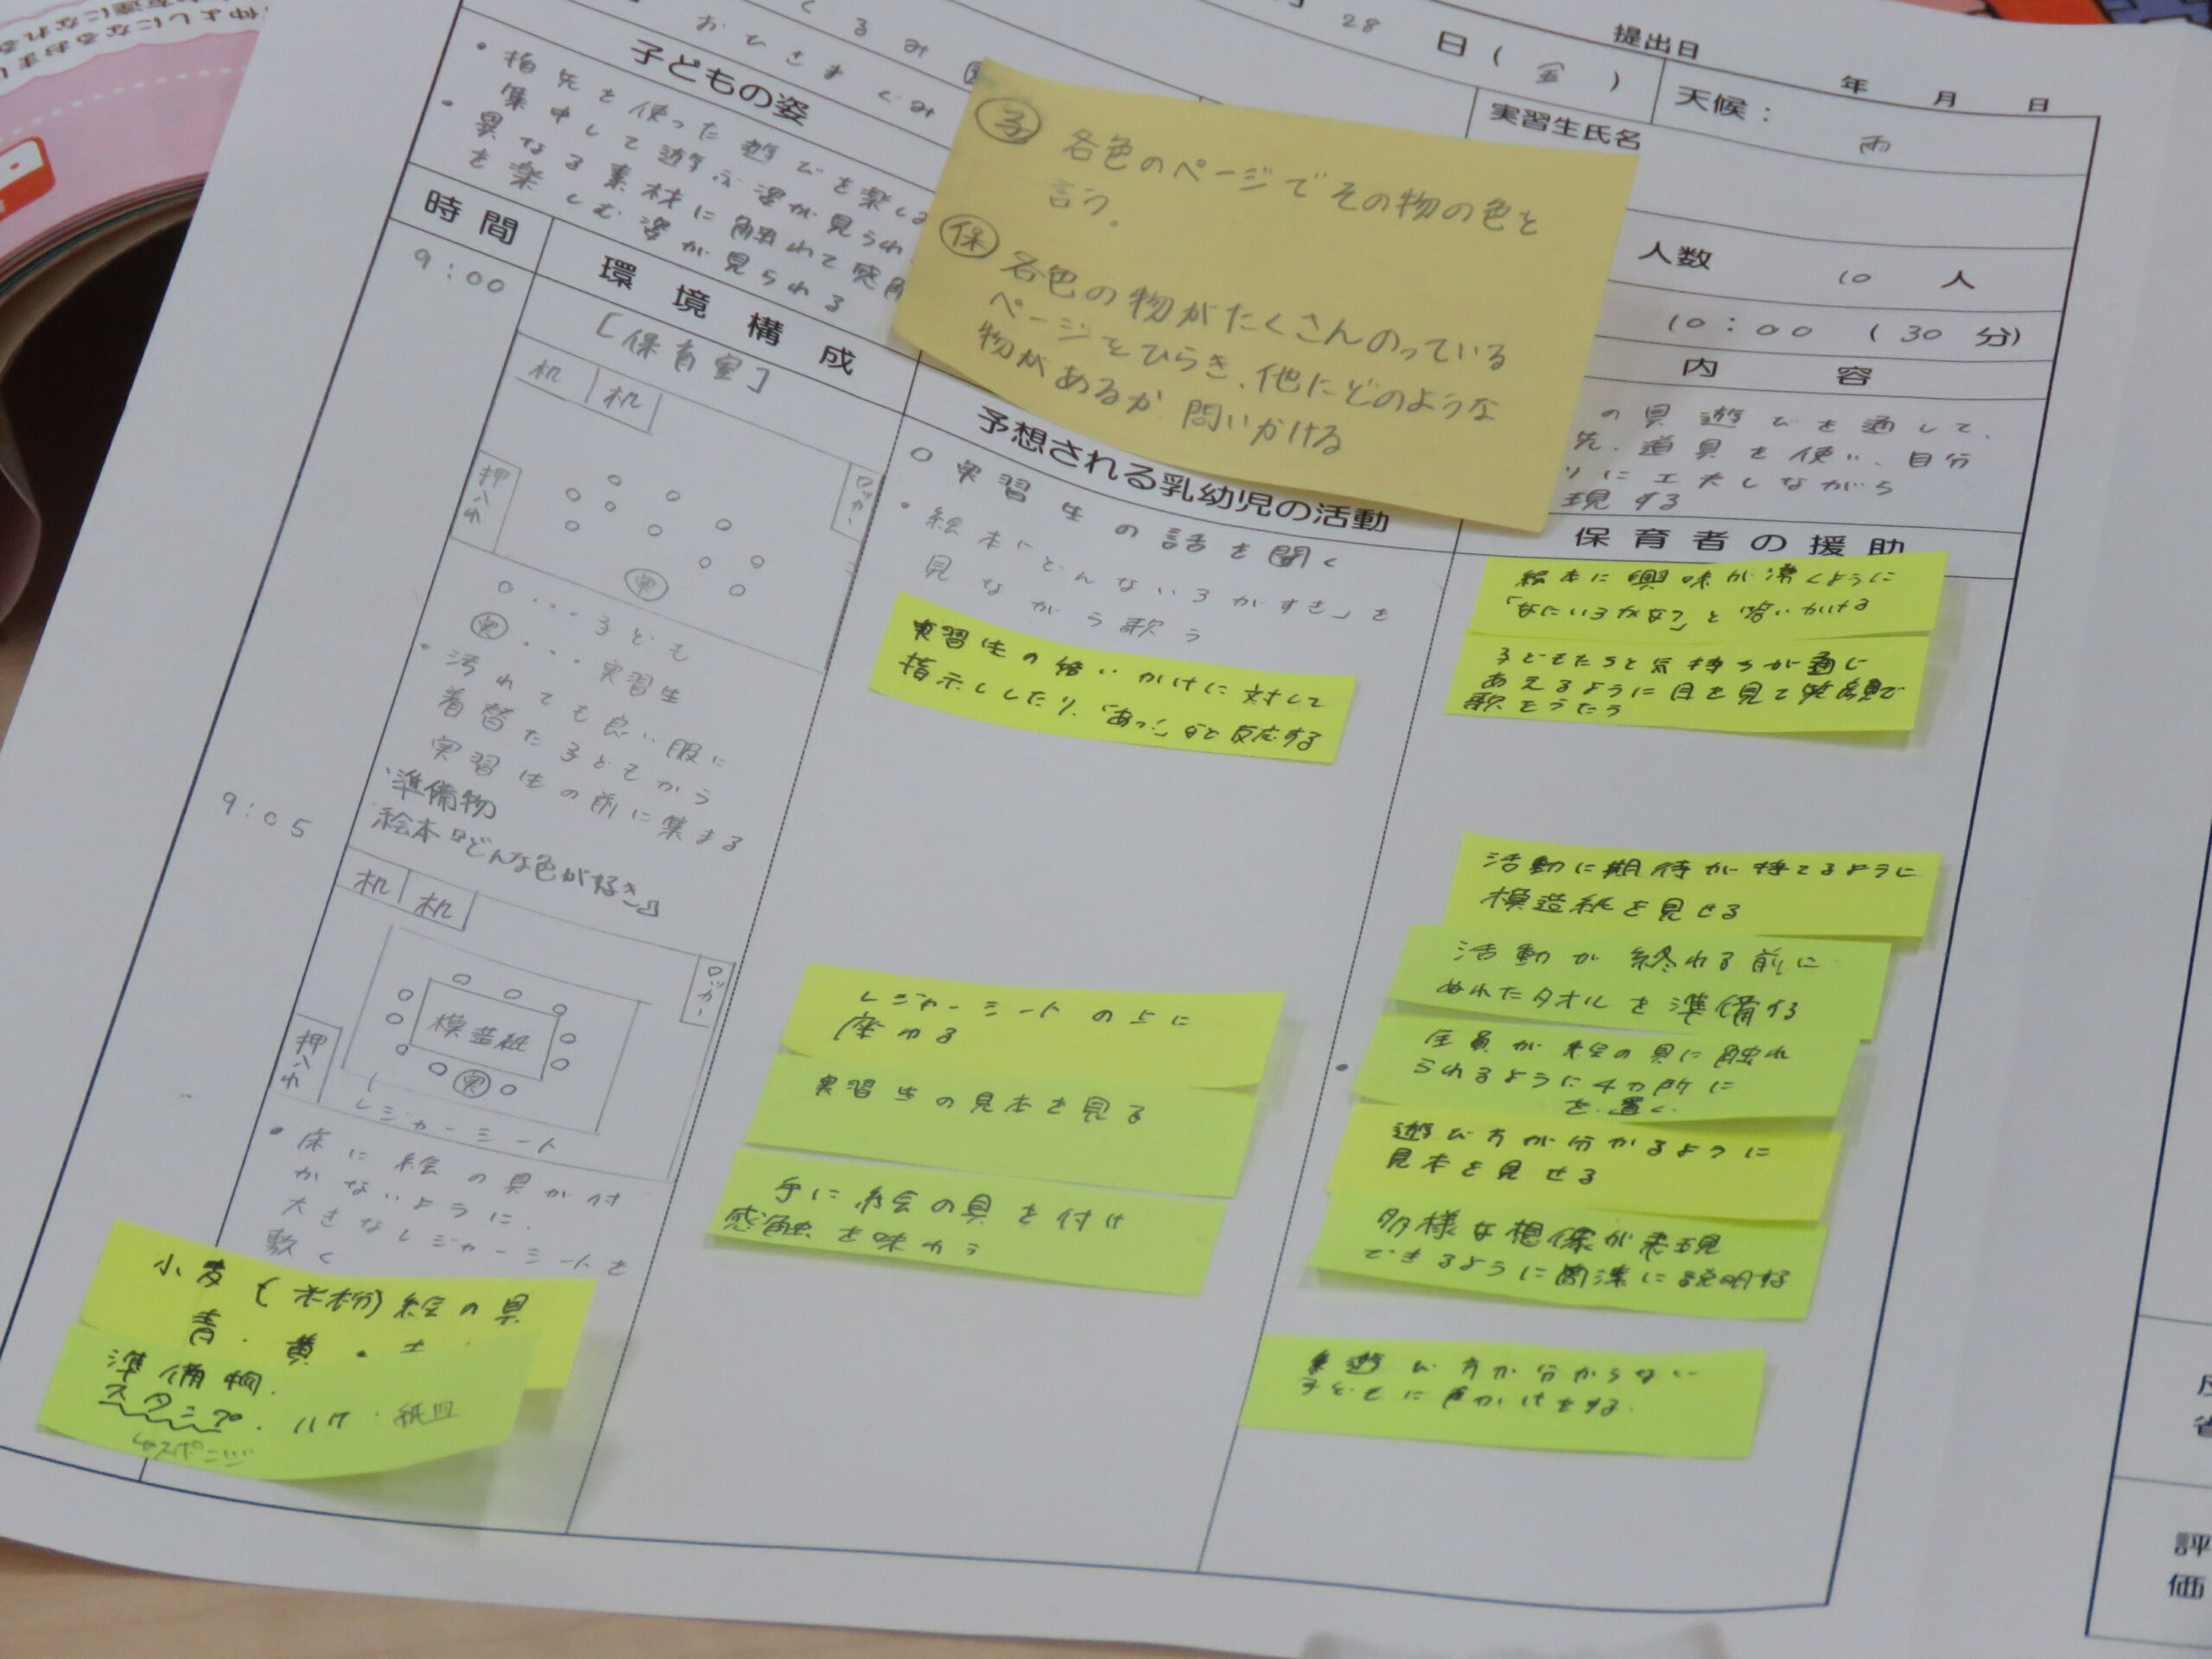 くるみ
おひさまぐみ
28 日 ( 金 )
提出日
年 月 日
天候： 雨
実習生氏名
人数 10 人
10：00 (30 分)
子どもの姿
・指先を使った遊びを楽し
集中して遊ぶ姿が見られ
・異なる素材に触れて感触
を楽しむ姿が見られる
内 容
の具遊びを通して、
先、道具を使い、自分
りに工夫しながら
現する
㊛
各色のページでその物の色を
言う。
各色の物がたくさんのっている
ページをひらき、他にどのような
物があるか 問いかける
時 間
環 境 構 成
予想される乳幼児の活動
保 育 者 の 援 助
9：00
[保育室]
机 机
押入れ
ロッカー
実
○...子ども
実...実習生
・汚れても良い服に
着替た子どもから
実習生の前に集まる
・準備物
絵本『どんな色が好き』
○実習生の話を聞く
・絵本「どんないろがすき」を
見ながら歌う
実習生の問いかけに対して
指さししたり、「あっ!」など反応する
絵本に興味が湧くように
「なにいろかな?」と問いかける
子どもたちと気持ちが通じ
あえるように目を見て笑顔で
歌をうたう
9：05
机 机
ロッカー
押入れ
模造紙
実
レジャーシート
・床に絵の具が付
かないように、
大きなレジャーシートを
敷く
小麦(米粉)絵の具
青・黄・
準備物・
スタンプ・ハケ・紙皿
↳スポンジ
レジャーシートの上に
座わる
実習生の見本を見る
手に絵の具を付け
感触を味わう
活動に期待が持てるように
模造紙を見せる
活動が終わる前に
ぬれたタオルを準備する
全員が絵の具に触れ
られるように4カ所に
を置く.
遊び方が分かるように
見本を見せる
多様な想像が表現
できるように簡潔に説明する
遊び方が分からない
子どもに声かけをする.
反省
評価